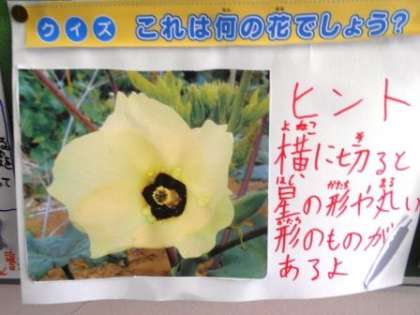 クイズ これは何の花でしょう？
ヒント
横に切ると
星の形や丸い
形のものが
あるよ